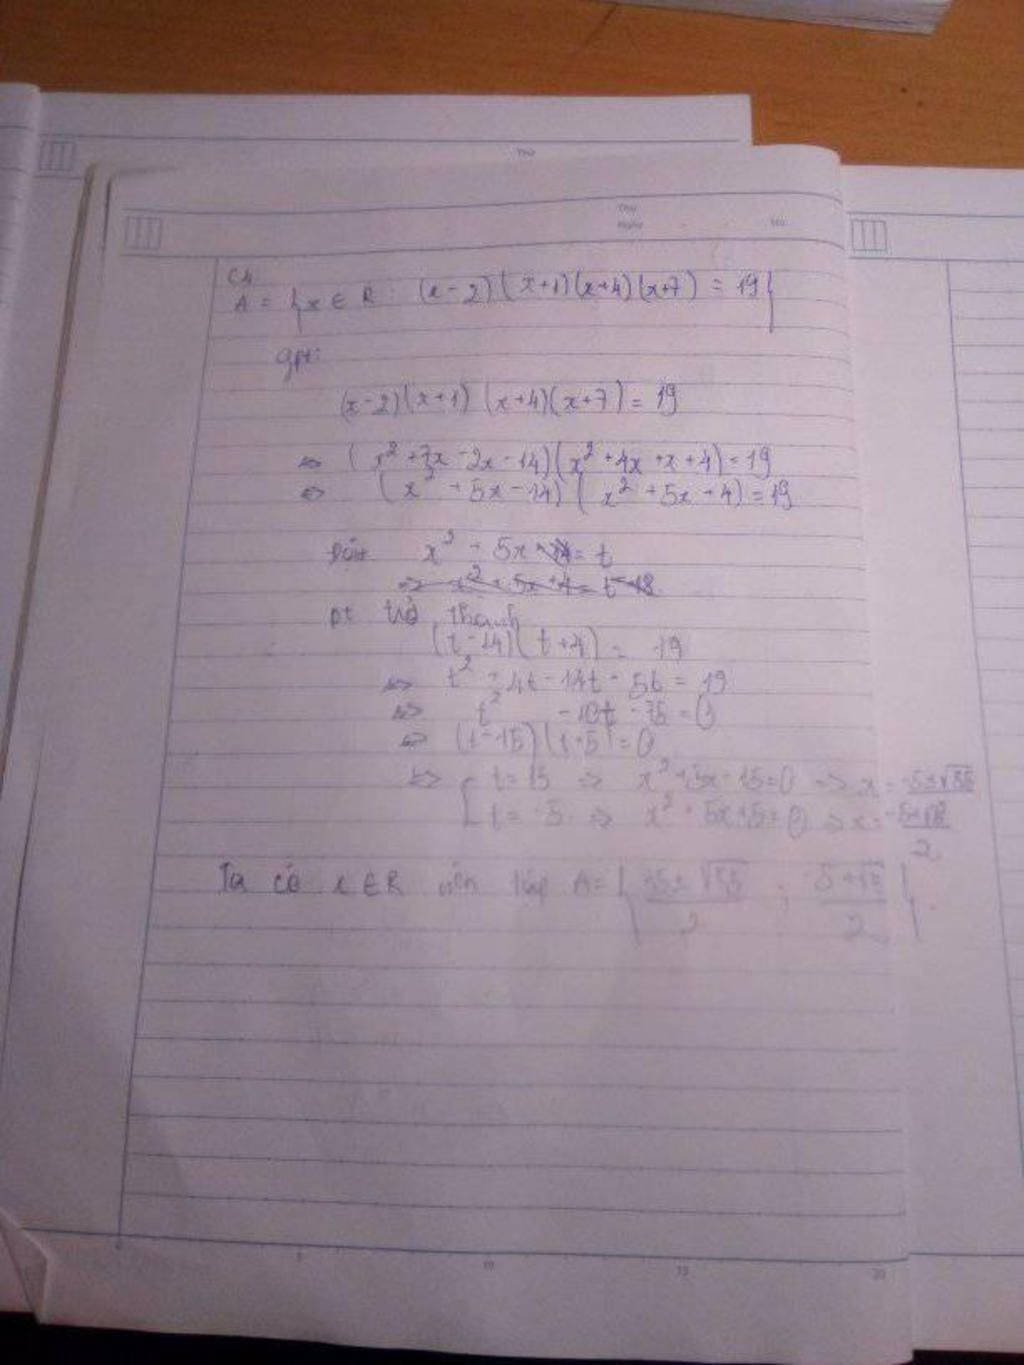 C4
A = {x ∈ R : (x-2)(x+1)(x+4)(x+7) = 19}
Gpt:
(x-2)(x+1)(x+4)(x+7) = 19
⇔ (x² + 7x - 2x - 14)(x² + 4x + x + 4) = 19
⇔ (x² + 5x - 14)(x² + 5x + 4) = 19
Đặt x² + 5x = t
pt trở thành
(t-14)(t+4) = 19
⇔ t² + 4t - 14t - 56 = 19
⇔ t² - 10t - 75 = 0
⇔ (t-15)(t+5) = 0
⇔ [ t = 15 ⇒ x² + 5x - 15 = 0 ⇒ x = -5±√85
t = -5 ⇒ x² + 5x + 5 = 0 ⇒ x =
2
Ta có x ∈ R nên tập A = { -5±√85 / 2 ; / 2 }
5
10
15
20